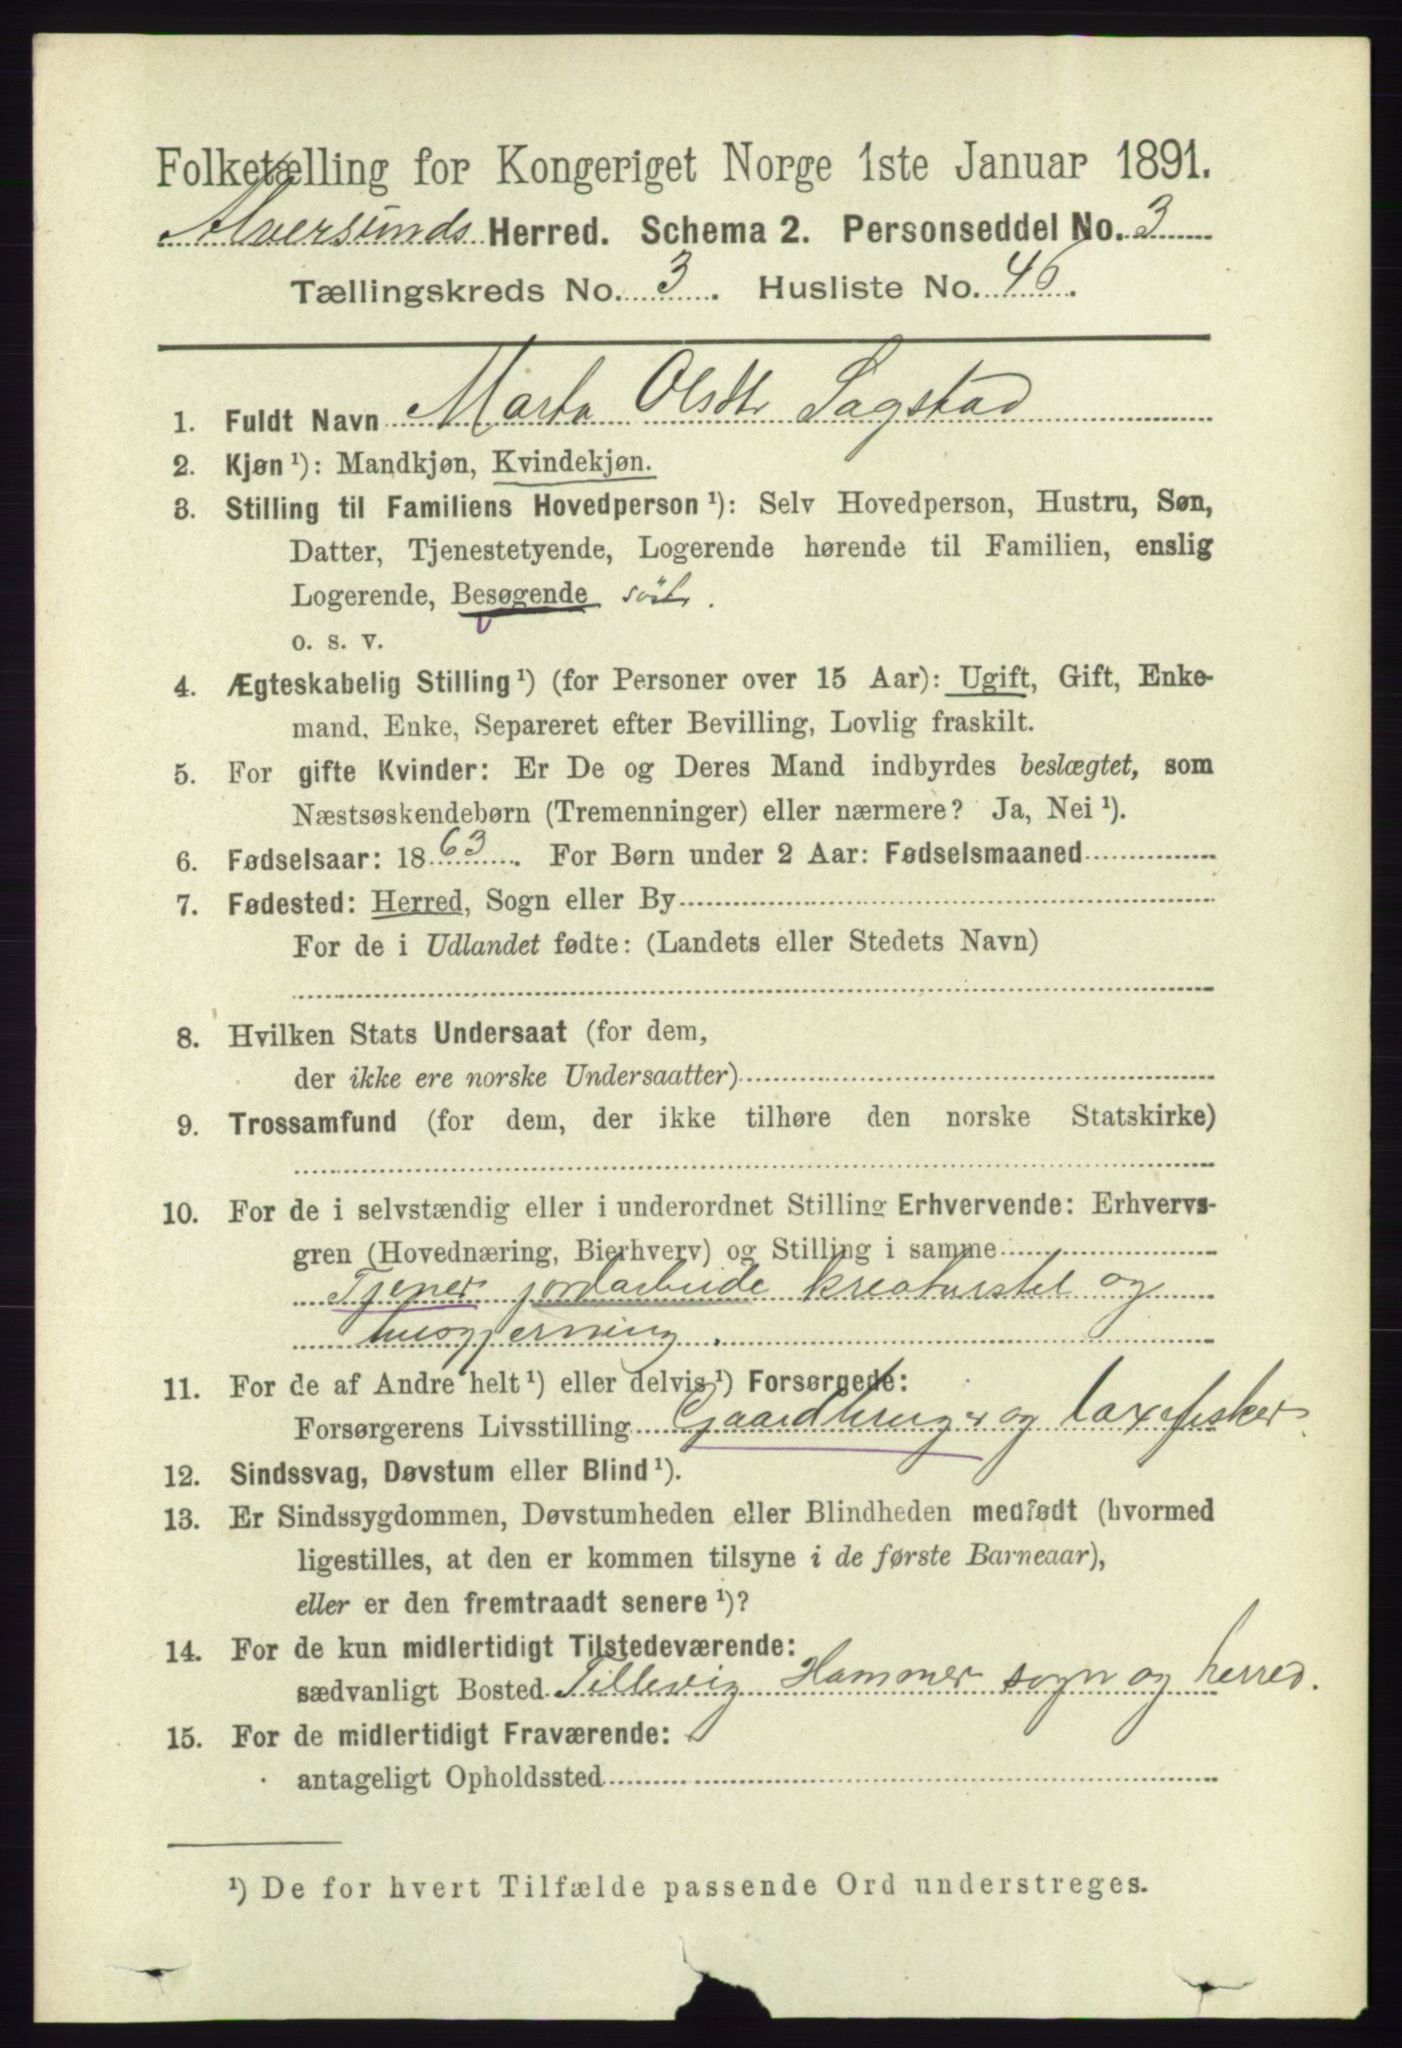 Folketælling for Kongeriget Norge 1ste Januar 1891.
Alversunds Herred. Schema 2. Personseddel No. 3
Tællingskreds No. 3. Husliste No. 46.
1. Fuldt Navn Marta Olsdtr Sagstad
2. Kjøn ¹): Mandkjøn, Kvindekjøn.
3. Stilling til Familiens Hovedperson ¹): Selv Hovedperson, Hustru, Søn,
Datter, Tjenestetyende, Logerende hørende til Familien, enslig
Logerende, Besøgende söst.
o. s. v.
4. Ægteskabelig Stilling ¹) (for Personer over 15 Aar): Ugift, Gift, Enke-
mand, Enke, Separeret efter Bevilling, Lovlig fraskilt.
5. For gifte Kvinder: Er De og Deres Mand indbyrdes beslægtet, som
Næstsøskendebørn (Tremenninger) eller nærmere? Ja, Nei ¹).
6. Fødselsaar: 1863. For Børn under 2 Aar: Fødselsmaaned
7. Fødested: Herred, Sogn eller By
For de i Udlandet fødte: (Landets eller Stedets Navn)
8. Hvilken Stats Undersaat (for dem,
der ikke ere norske Undersaatter)
9. Trossamfund (for dem, der ikke tilhøre den norske Statskirke)
10. For de i selvstændig eller i underordnet Stilling Erhvervende: Erhvervs-
gren (Hovednæring, Bierhverv) og Stilling i samme
Tjener jordarbeide kreaturstel og
husgjerning.
11. For de af Andre helt ¹) eller delvis ¹) Forsørgede:
Forsørgerens Livsstilling Gaardbruger og laxefisker.
12. Sindssvag, Døvstum eller Blind ¹).
13. Er Sindssygdommen, Døvstumheden eller Blindheden medfødt (hvormed
ligestilles, at den er kommen tilsyne i de første Barneaar),
eller er den fremtraadt senere ¹)?
14. For de kun midlertidigt Tilstedeværende:
sædvanligt Bosted Tillevig Hammer sogn og herred.
15. For de midlertidigt Fraværende:
antageligt Opholdssted
¹) De for hvert Tilfælde passende Ord understreges.